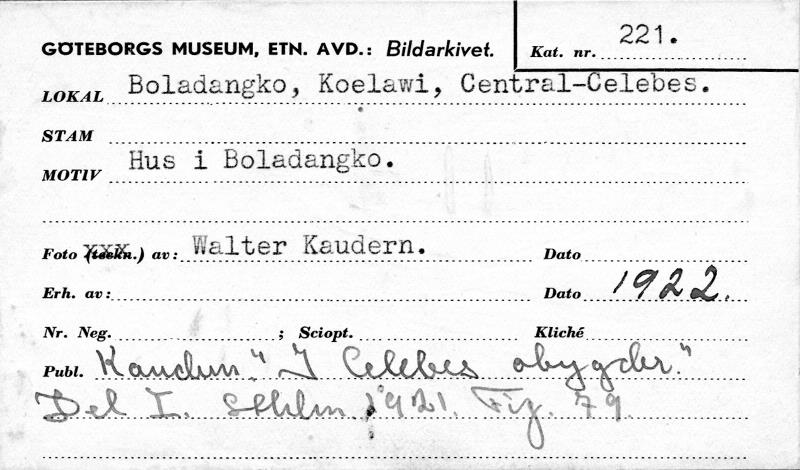 GÖTEBORGS MUSEUM, ETN. AVD.: Bildarkivet.
Kat. nr. 221.
LOKAL Boladangko, Koelawi, Central-Celebes.
STAM
MOTIV Hus i Boladangko.
Foto (teckn.) av: Walter Kaudern. Dato
Erh. av: Dato 1922.
Nr. Neg. ; Sciopt. Kliché
Publ. Kaudern "I Celebes obygder."
Del I. Sthlm 1921. Fig. 79